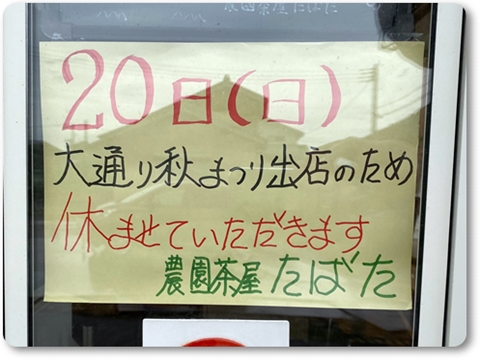 20日(日)
大通り秋まつり出店のため
休ませていただきます
農園茶屋たばた